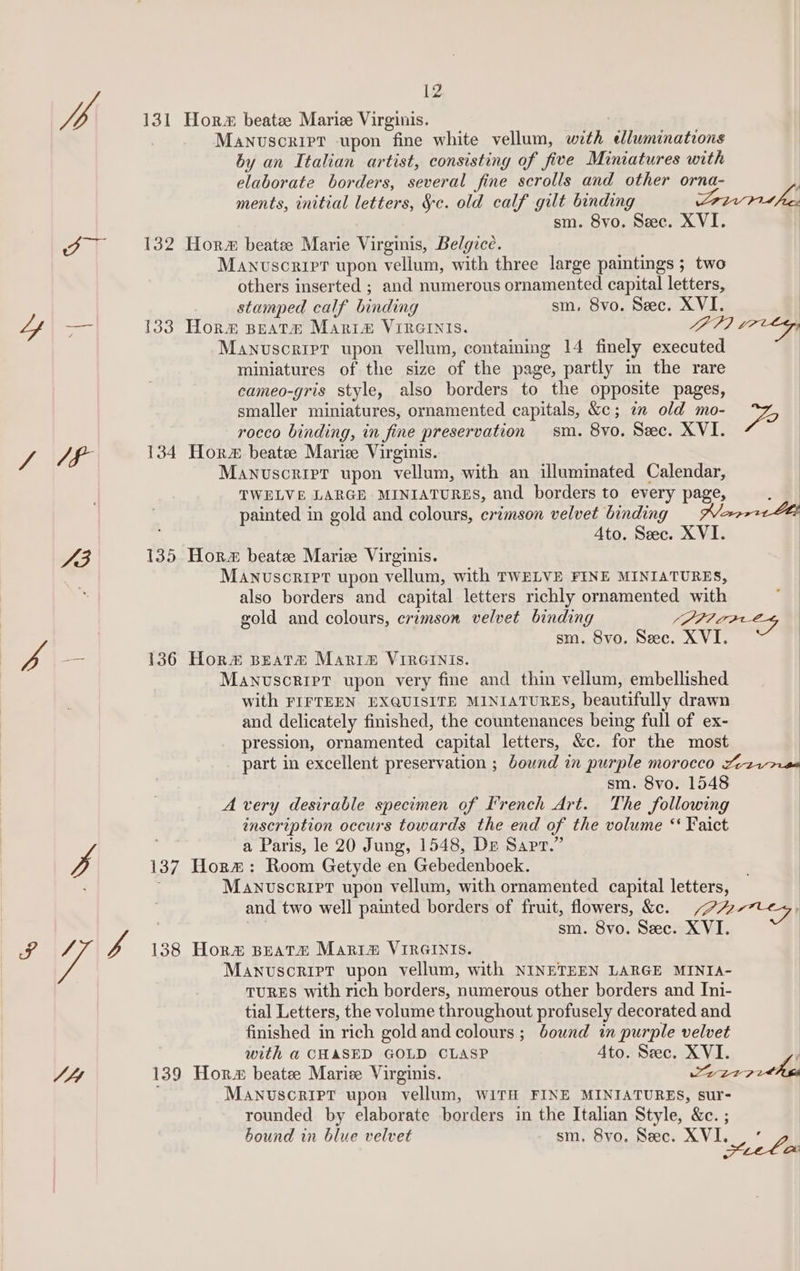 12
131 Horæ beatæ Mariæ Virginis.
Manuscript upon fine white vellum, with illuminations
by an Italian artist, consisting of five Miniatures with
elaborate borders, several fine scrolls and other orna-
ments, initial letters, &c. old calf gilt binding
sm. 8vo. Sæc. XVI.
132 Horæ beatæ Marie Virginis, Belgicè.
Manuscript upon vellum, with three large paintings; two
others inserted; and numerous ornamented capital letters,
stamped calf binding sm. 8vo. Sæc. XVI.
133 Horæ beatæ Mariæ Virginis.
Manuscript upon vellum, containing 14 finely executed
miniatures of the size of the page, partly in the rare
cameo-gris style, also borders to the opposite pages,
smaller miniatures, ornamented capitals, &c; in old mo-
rocco binding, in fine preservation sm. 8vo. Sæc. XVI.
134 Horæ beatæ Mariæ Virginis.
Manuscript upon vellum, with an illuminated Calendar,
TWELVE LARGE MINIATURES, and borders to every page,
painted in gold and colours, crimson velvet binding
4to. Sæc. XVI.
13 135 Horæ beatæ Mariæ Virginis.
Manuscript upon vellum, with TWELVE FINE MINIATURES,
also borders and capital letters richly ornamented with
gold and colours, crimson velvet binding
sm. 8vo. Sæc. XVI.
136 Horæ beatæ Mariæ Virginis.
Manuscript upon very fine and thin vellum, embellished
with FIFTEEN EXQUISITE MINIATURES, beautifully drawn
and delicately finished, the countenances being full of ex-
pression, ornamented capital letters, &c. for the most
part in excellent preservation; bound in purple morocco
sm. 8vo. 1548
A very desirable specimen of French Art. The following
inscription occurs towards the end of the volume “Faict
a Paris, le 20 Jung, 1548, De Sapt.”
137 Horæ: Room Getyde en Gebedenboek.
Manuscript upon vellum, with ornamented capital letters,
and two well painted borders of fruit, flowers, &c.
sm. 8vo. Sæc. XVI.
138 Horæ beatæ Mariæ Virginis.
Manuscript upon vellum, with NINETEEN LARGE MINIA-
TURES with rich borders, numerous other borders and Ini-
tial Letters, the volume throughout profusely decorated and
finished in rich gold and colours; bound in purple velvet
with a CHASED GOLD CLASP 4to. Sæc. XVI.
139 Horæ beatæ Mariæ Virginis.
Manuscript upon vellum, WITH FINE MINIATURES, sur-
rounded by elaborate borders in the Italian Style, &c.;
bound in blue velvet sm. 8vo. Sæc. XVI.